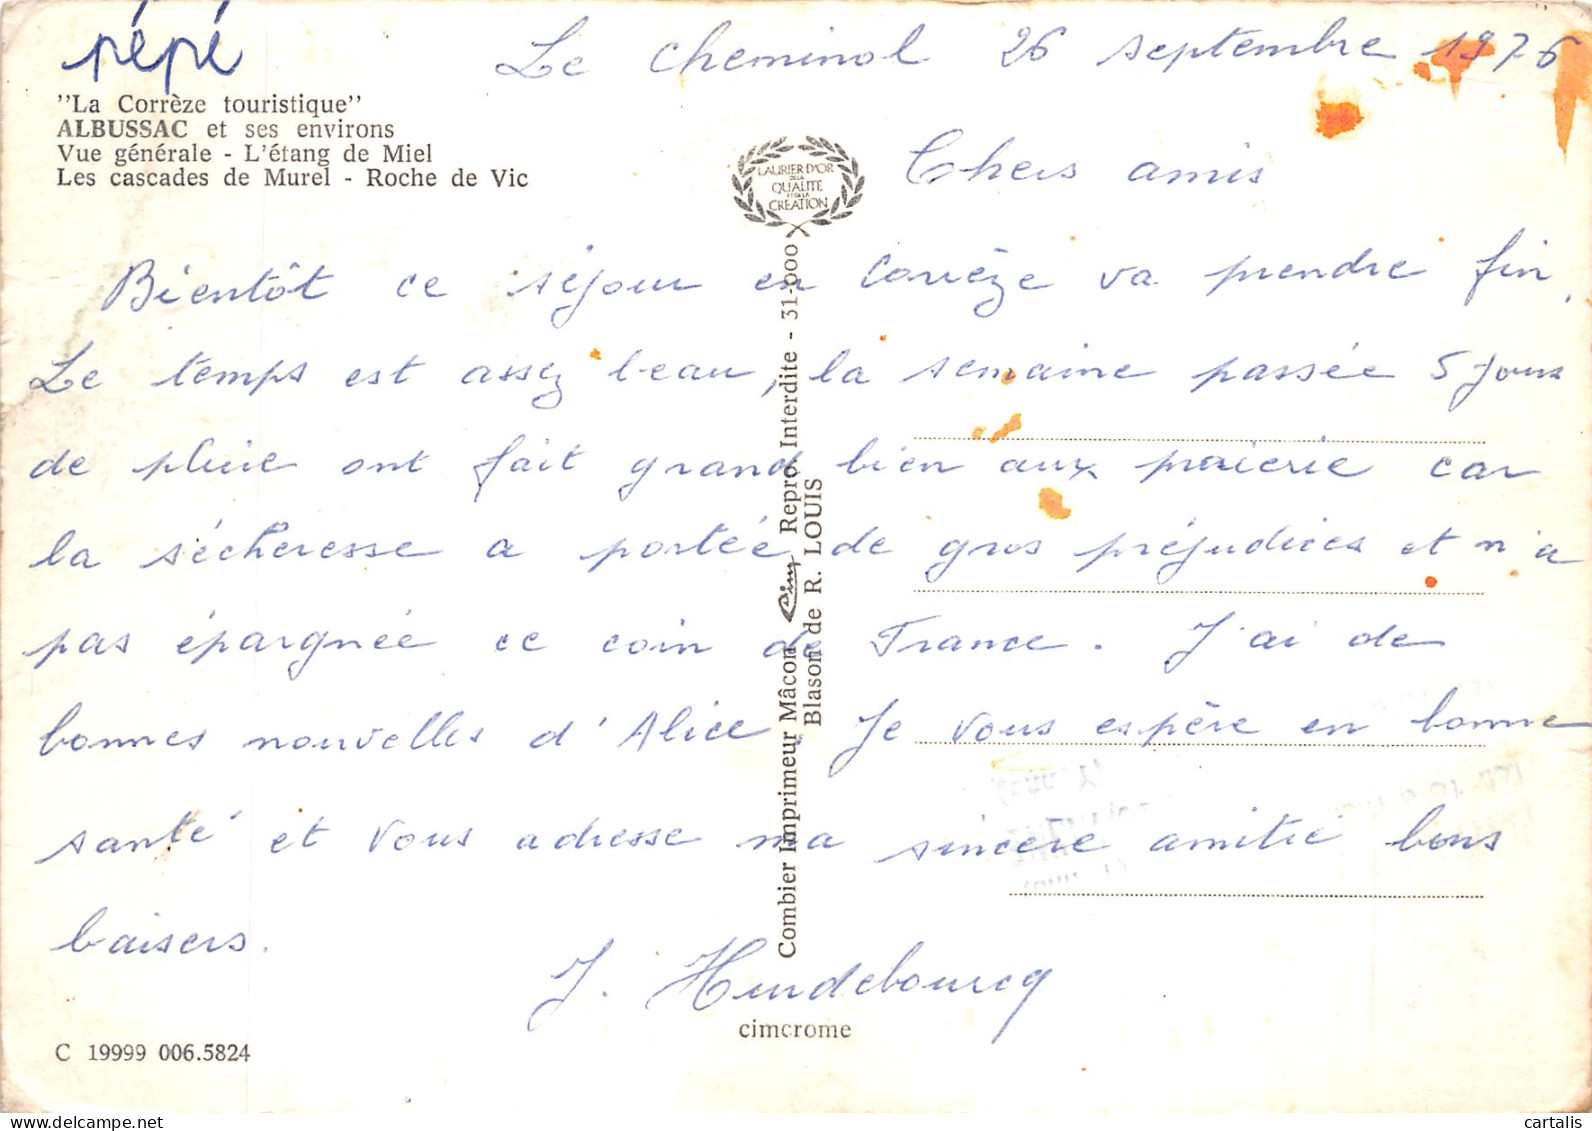 pépé
Le Cheminol 26 septembre 1976
"La Corrèze touristique"
ALBUSSAC et ses environs
Vue générale - L'étang de Miel
Les cascades de Murel - Roche de Vic
LAURIER D'OR
DE LA
QUALITE
ET DE LA
CREATION
Chers amis
Bientôt ce séjour en Corrèze va prendre fin.
Le temps est assez beau, la semaine passée 5 jours
de pluie ont fait grand bien aux praierie car
la sécheresse a portée de gros préjudices et n'a
pas épargnée ce coin de France. J'ai de
bonnes nouvelles d'Alice. Je vous espère en bonne
santé et vous adresse ma sincère amitié bons
baisers.
J. Hurdebourcq
Combier Imprimeur Mâcon Cim Repro. Interdite - 31-000
Blason de R. LOUIS
cimcrome
C 19999 006.5824
cartalis